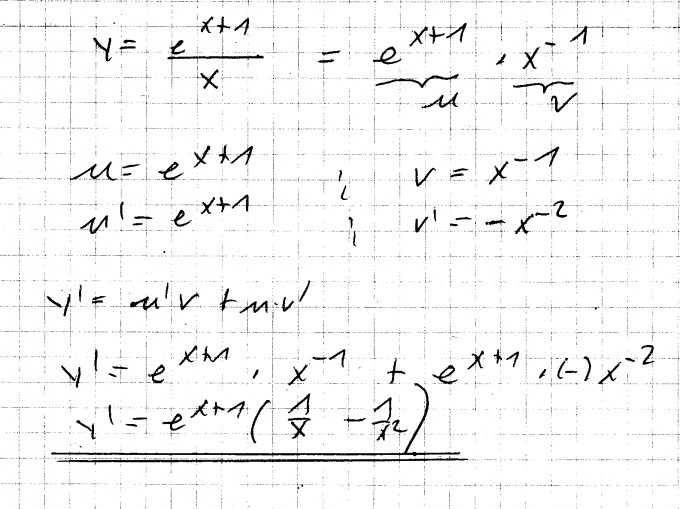 y = e^{x+1}/x = e^{x+1} · x^{-1}
u v
u = e^{x+1} ; v = x^{-1}
u' = e^{x+1} ; v' = -x^{-2}
y' = u'v + u·v'
y' = e^{x+1} · x^{-1} + e^{x+1} · (-) x^{-2}
y' = e^{x+1} ( 1/x - 1/x² )